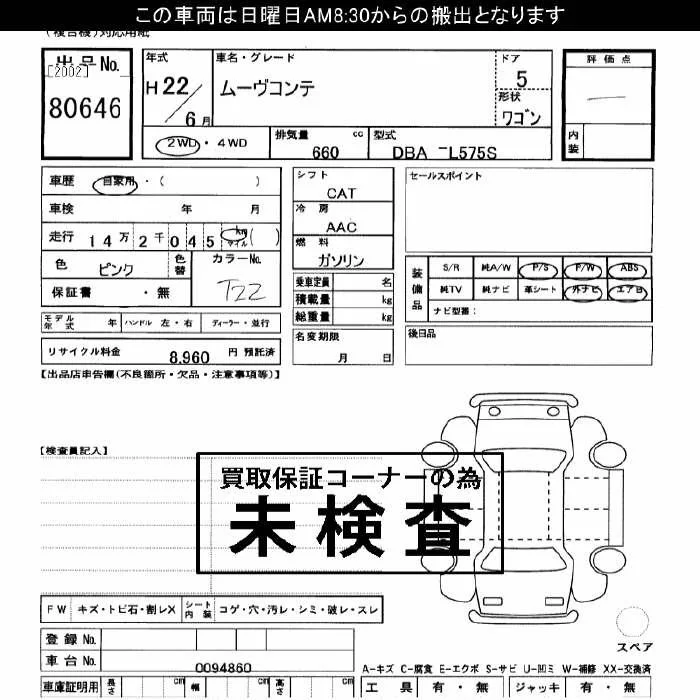 この車両は日曜日AM8:30からの搬出となります
(複合機)対応用紙
出品No.
[2002]
80646
年式
H22/6月
車名・グレード
ムーヴコンテ
ドア
5
形状
ワゴン
評価点
―
内装
2WD・4WD
排気量 660 cc
型式 DBA -L575S
車歴 自家用・( )
車検 年 月
走行 14万2千045 km マイル ( )
色 ピンク 色替 カラーNo. T22
保証書 ・無
シフト CAT
冷房 AAC
燃料 ガソリン
乗車定員 名
積載量 kg
総重量 kg
名変期限 月 日
セールスポイント
装備品
S/R 純A/W P/S P/W ABS
純TV 純ナビ 革シート 外ナビ エアB
ナビ型番:
後日品
モデル年式 年 ハンドル 左・右 ディーラー・並行
リサイクル料金 8,960 円 預託済
【出品店申告欄(不良箇所・欠品・注意事項等)】
【検査員記入】
買取保証コーナーの為
未検査
FW キズ・トビ石・割レX シート内装 コゲ・穴・汚レ・シミ・破レ・スレ
登録No.
車台No. 0094860
スペア
A-キズ C-腐食 E-エクボ S-サビ U-凹ミ W-補修 XX-交換済
車庫証明用 長さ cm 幅 cm 高さ cm
工具 有・無 ジャッキ 有・無